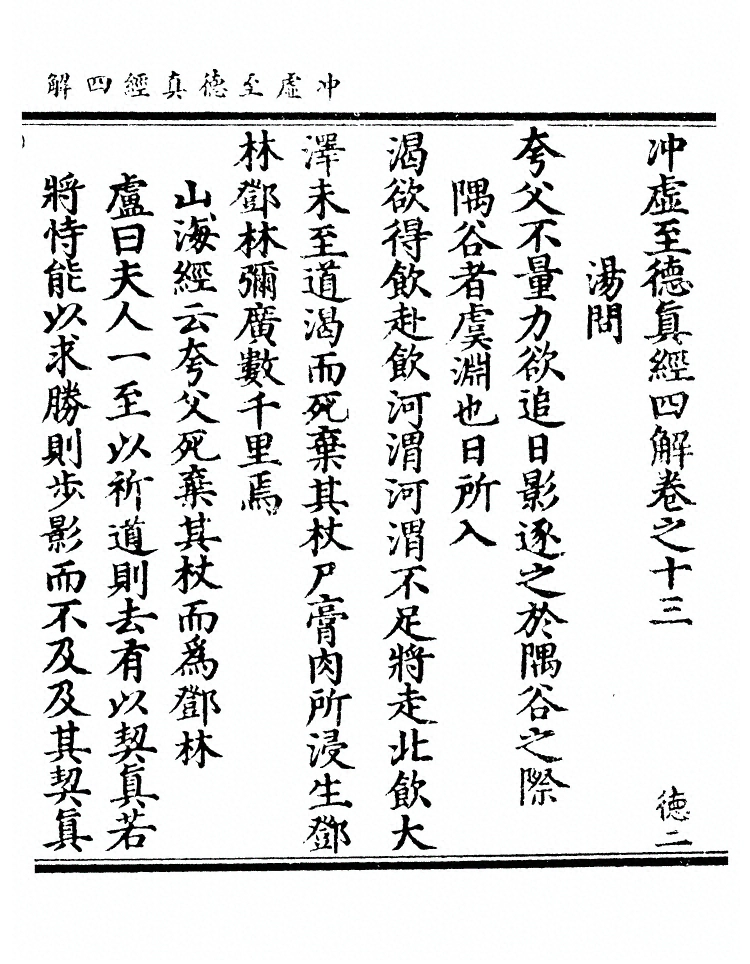 冲虛至德真經四解
冲虛至德眞經四解卷之十三
德二
湯問
夸父不量力欲追日影逐之於隅谷之際
隅谷者虞淵也日所入
渴欲得飲赴飲河渭河渭不足將走北飲大
澤未至道渴而死棄其杖尸膏肉所浸生鄧
林鄧林彌廣數千里焉
山海經云夸父死棄其杖而爲鄧林
盧曰夫人一至以祈道則去有以契眞若
將恃能以求勝則步影而不及及其契眞